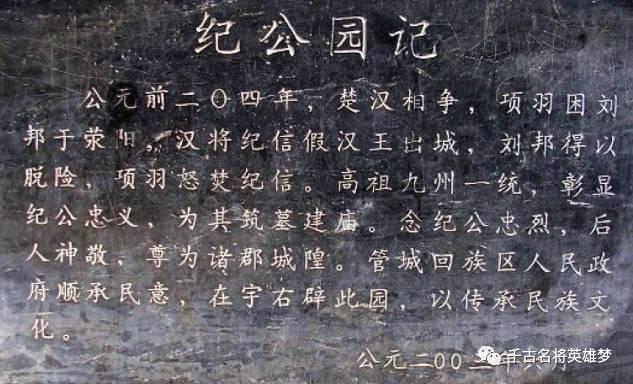 纪公园记
公元前二〇四年，楚汉相争，项羽困刘
邦于荥阳，汉将纪信假汉王出城，刘邦得以
脱险，项羽怒焚纪信。高祖九州一统，彰显
纪公忠义，为其筑墓建庙。念纪公忠烈，后
人神敬，尊为诸郡城隍。管城回族区人民政
府顺承民意，在宇右辟此园，以传承民族文
化。
公元二〇〇
千古名将英雄梦